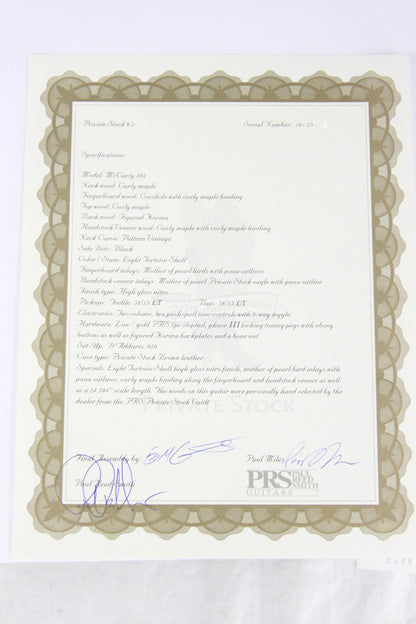 Private Stock #:
Serial Number: 14-23-
Specifications:
Model: McCarty 594
Neck wood: Curly maple
Fingerboard wood: Cocobolo with curly maple binding
Top wood: Curly maple
Back wood: Figured Korina
Headstock Veneer wood: Curly maple with curly maple binding
Neck Carve: Pattern Vintage
Side Dots: Black
Color / Stain: Light Tortoise Shell
Fingerboard inlays: Mother of pearl birds with paua outlines
Headstock veneer inlays: Mother of pearl Private Stock eagle with paua outline
Finish type: High gloss nitro
Pickups: Treble: 58/15 LT Bass: 58/15 LT
Electronics: Two volume, two push-pull tone controls with 3-way toggle
Hardware: Zinc / gold PRS 2pc stoptail, phase III locking tuning pegs with ebony
buttons as well as figured Korina backplates and a bone nut
Set-Up: D'Addario .010
Case type: Private Stock Brown leather
Specials: Light Tortoise Shell high gloss nitro finish, mother of pearl bird inlays with
paua outlines, curly maple binding along the fingerboard and headstock veneer as well
as a 24.594" scale length. The woods on this guitar were personally hand selected by the
dealer from the PRS Private Stock Vault.
PRIVATE STOCK
Final Assembly by:
Paul Miles
Paul Reed Smith
PRS PAUL REED SMITH
GUITARS